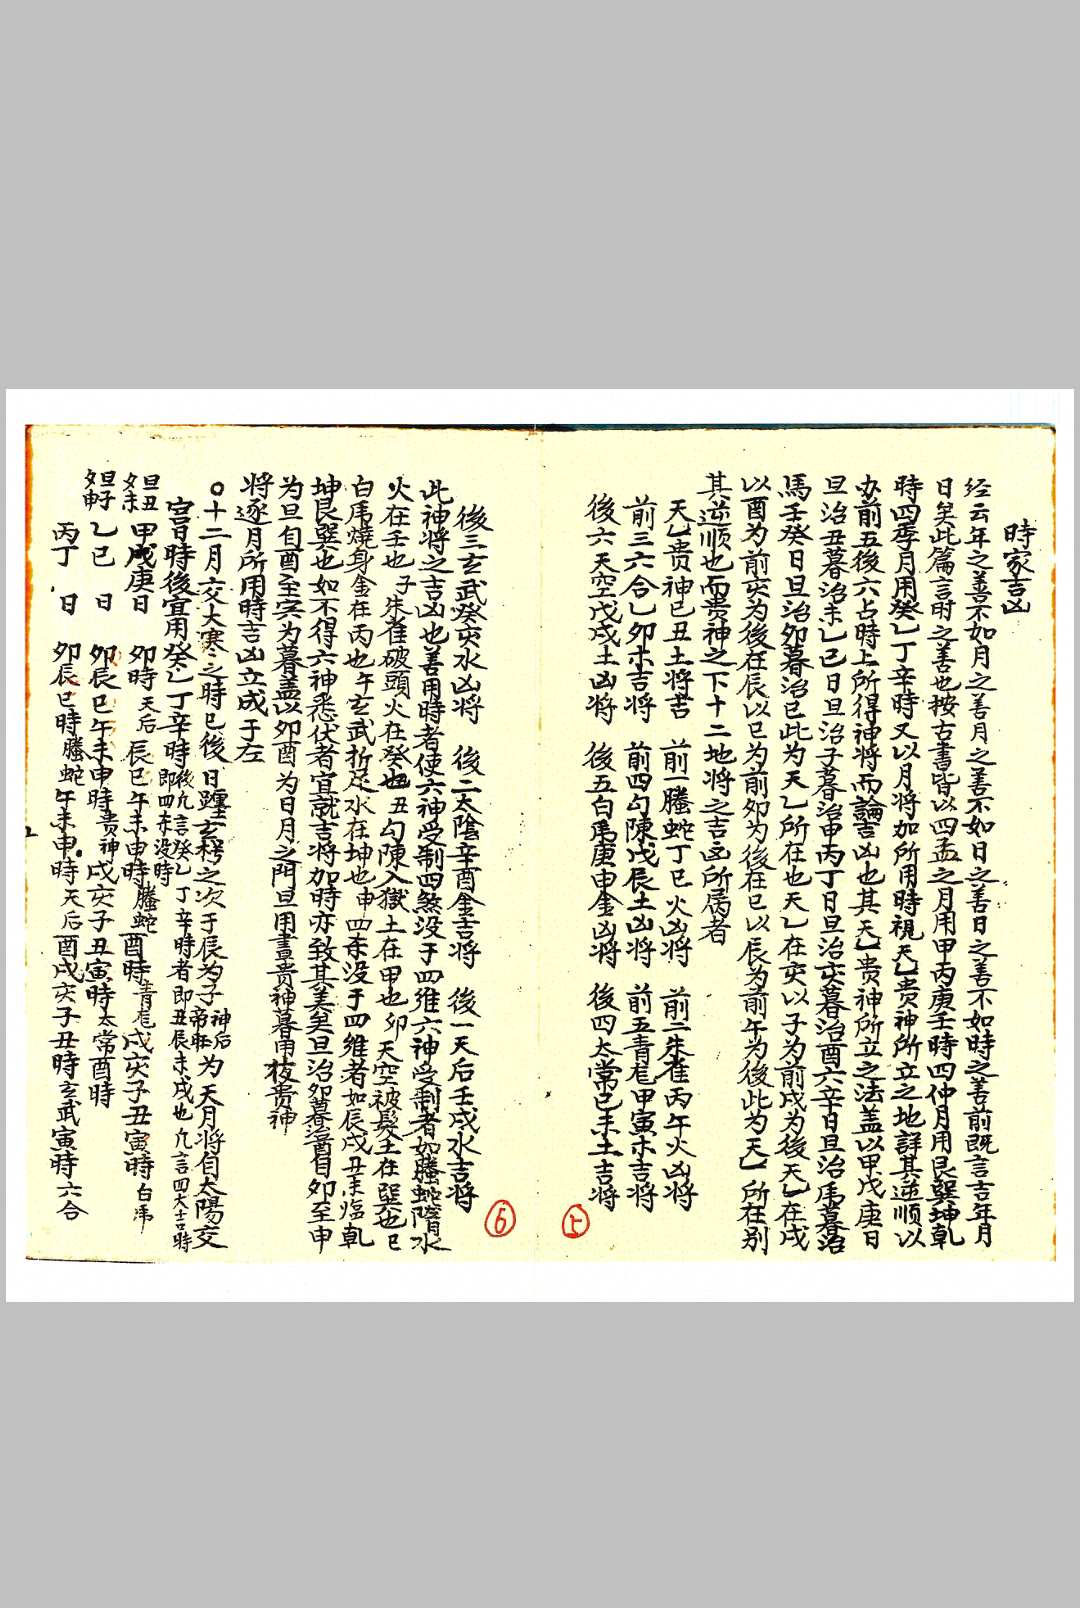 時家吉凶
経云年之善不如月之善月之善不如日之善日之善不如時之善前既言吉年月
日矣此篇言時之善也按古書皆以四孟之月用甲丙庚壬時四仲月用艮巽坤乹
時四季月用癸乙丁辛時又以月将加所用時視天乙贵神所立之地詳其逆顺以
办前五後六占時上所得神将而論吉凶也其天乙贵神所立之法盖以甲戊庚日
旦治丑暮治未乙己日旦治子暮治申丙丁日旦治亥暮治酉六辛日旦治馬暮治
馬壬癸日旦治卯暮治巳此为天乙所在也天乙在亥以子为前戌为後天乙在戌
以酉为前亥为後在辰以巳为前卯为後在巳以辰为前午为後此为天乙所在别
其逆顺也而贵神之下十二地将之吉凶所属者
天乙贵神己丑土将吉 前一螣蛇丁巳火凶将 前二朱雀丙午火凶将
前三六合乙卯木吉将 前四勾陳戊辰土凶将 前五青尨甲寅木吉将
後六天空戊戌土凶将 後五白馬庚申金凶将 後四太常己未土吉将
上
6
後三玄武癸亥水凶将 後二太陰辛酉金吉将 後一天后壬戌水吉将
此神将之吉凶也善用時者使六神受制四煞没于四維六神受制者如螣蛇墮水
火在壬也子朱雀破頭火在癸也丑勾陳入獄土在甲也卯天空被髮土在巽也巳
白馬燒身金在丙也午玄武折足水在坤也申四煞没于四維者如辰戌丑未臨乹
坤艮巽也如不得六神悉伏者宜就吉将加時亦致其美矣旦治卯暮治酉自卯至申
为旦自酉至寅为暮盖以卯酉为日月之門旦用晝贵神暮用夜贵神
将逐月所用時吉凶立成于左
〇十二月交大寒之時已後日躔玄枵之次于辰为子神后帝旺为天月将自太陽交
宫日時後宜用癸乙丁辛時後凢言癸乙丁辛時者即丑辰未戌也凢言四大吉時即四煞没時
旦丑夕未甲戊庚日 卯時天后辰巳午未申時螣蛇酉時青尨戌亥子丑寅時白馬
旦子夕申乙己日 卯辰巳午未申時贵神戌亥子丑寅時太常酉時
丙丁日 卯辰巳時螣蛇午未申時天后酉戌亥子丑時玄武寅時六合